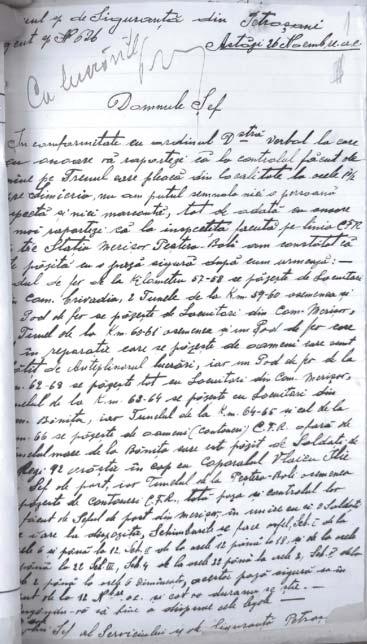 de Siguranță din Petroșani
N° 626
Astăzi 26 Noembrie a.c.
Cu lucrările
Domnule Șef
In conformitate cu ordinul D-stră verbal la care
cu onoare vă raportez că la controlul făcut de
mine pe Trenul care pleacă din localitate la orele
Simeria, nu am putut semnala nici o persoană
suspectă și nici marcantă, tot de odată cu onoare
mai raportez că la inspecția făcută pe linia C.F.R.
Stația Merișor Peștera-Boli am constatat că
păzită cu o pază sigură după cum urmează:
de fer de la Kilometru 57-58 se păzește de Locuitori
Com. Crivadia, 2 Tunele de la Km 59-60 asemenea și
Pod de fer se păzește de Locuitori din Com. Merișor,
Tunel de la Km. 60-61 asemenea și un Pod de fer care
în reparație care se păzește de oameni care sunt
de Antreprenorul lucrări, iar un Pod de fer de la
62-63 se păzește tot cu Locuitori din Com. Merișor,
Tunelul de la K.m. 63-64 se păzește cu Locuitori din
Bănița, iar Tunelul de la K.m. 64-65 și cel de la
66 se păzește de oameni (cantoneri) C.F.R. afară de
Tunelul mare de la Bănița care este păzit de Soldați, de
Reg. 92 Orăștie în cap cu Caporalul Vlaicu Ilie
Șef de post, iar Tunelul de la Peștera-Boli asemenea
păzește de Cantoneri C.F.R., totă paza și controlul lor
făcut de Șeful de post din Merișor, în unire cu 2 Soldați
care la dispoziția, Schimburile se face astfel, Sch. I de la
orele 6 și până la 12 Sch. II de la orele 12 până la 18 și de la orele
până la 22 Sch. III, Sch. 4 de la orele 22 până la orele 2, Sch. 5 de la
2 până la orele 6 dimineața, această pază sigură sa în
de la 12 a.c. și cât va dura nu se știe.
să bine a dispune cele legale
Șef al Serviciului de Siguranță Petroș.